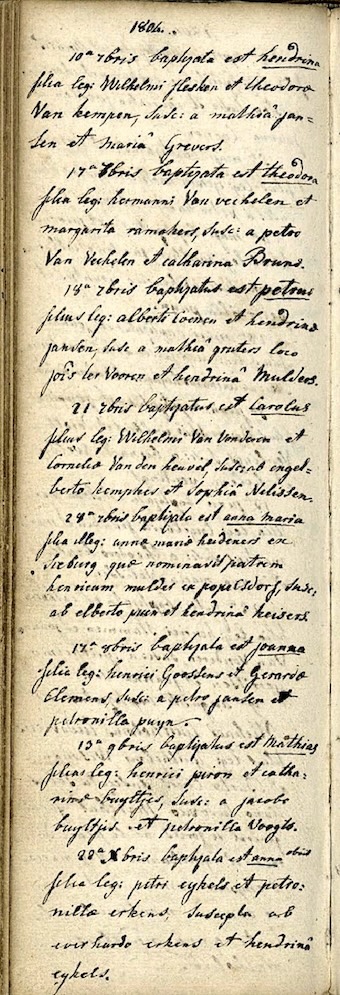 1804.
10ª 7bris baptizata est hendrina
filia leg: Wilhelmi flesken et theodoræ
Van kempen, susc: a mathiâ jan=
sen et mariâ Grevers.
17ª 7bris baptizata est theodora
filia leg: hermanni Van vechelen et
margarita ramakers, susc: a petro
Van Vechelen et catharina Bruns.
18ª 7bris baptizatus est petrus
filius leg: alberti Coenen et hendrinæ
jansen, susc a mathiâ gruters loco
joîs ter Vooren et hendrinâ Mulders.
21 7bris baptizatus est Carolus
filius leg: Wilhelmi Van Vonderen et
Corneliæ Van den heuvel, susc: ab engel=
berto kemphes et Sophiâ Nelissen.
28ª 7bris baptizata est anna maria
filia illeg: annæ mariæ heideners ex
Sieburg quæ nominavit patrem
henricum mulder ex popelsdorf, susc:
ab elberto puin et hendrinâ keisers.
17ª 8bris baptizata est joanna
filia leg: henrici Goessens et Gerardæ
Clemens, susc: a petro jansen et
petronilla puyn.
13ª 9bris baptizatus est Mathias
filius leg: henrici piron et catha=
rinæ buyltjes, susc: a jacobo
buyltjes et petronilla Voogts.
22ª Xbris baptizata est anna obiit
filia leg: petri eykels et petro=
nillæ erkens, suscepta ab
everhardo erkens et hendrinâ
eykels.